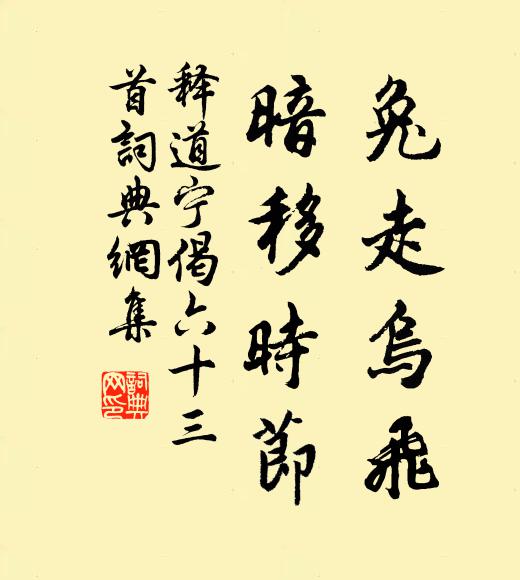 兔走烏飛
暗移時節
释道宁偈六十三
首詞典網集
詞典
网印